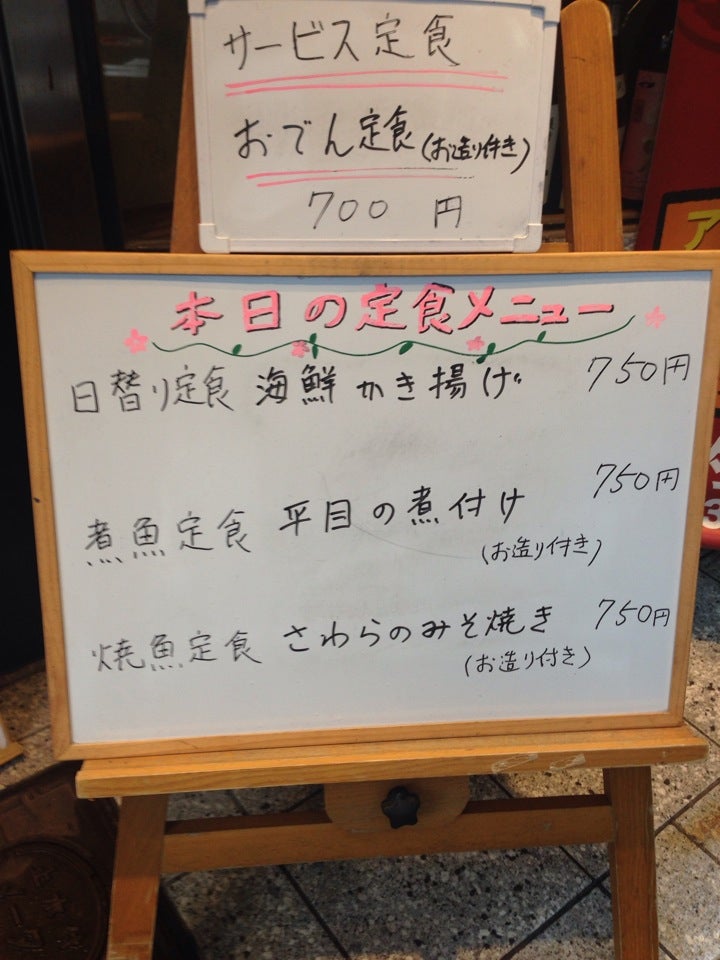 サービス定食
おでん定食(お造り付き)
700円
本日の定食メニュー
日替り定食 海鮮かき揚げ 750円
煮魚定食 平目の煮付け 750円
(お造り付き)
焼魚定食 さわらのみそ焼き 750円
(お造り付き)